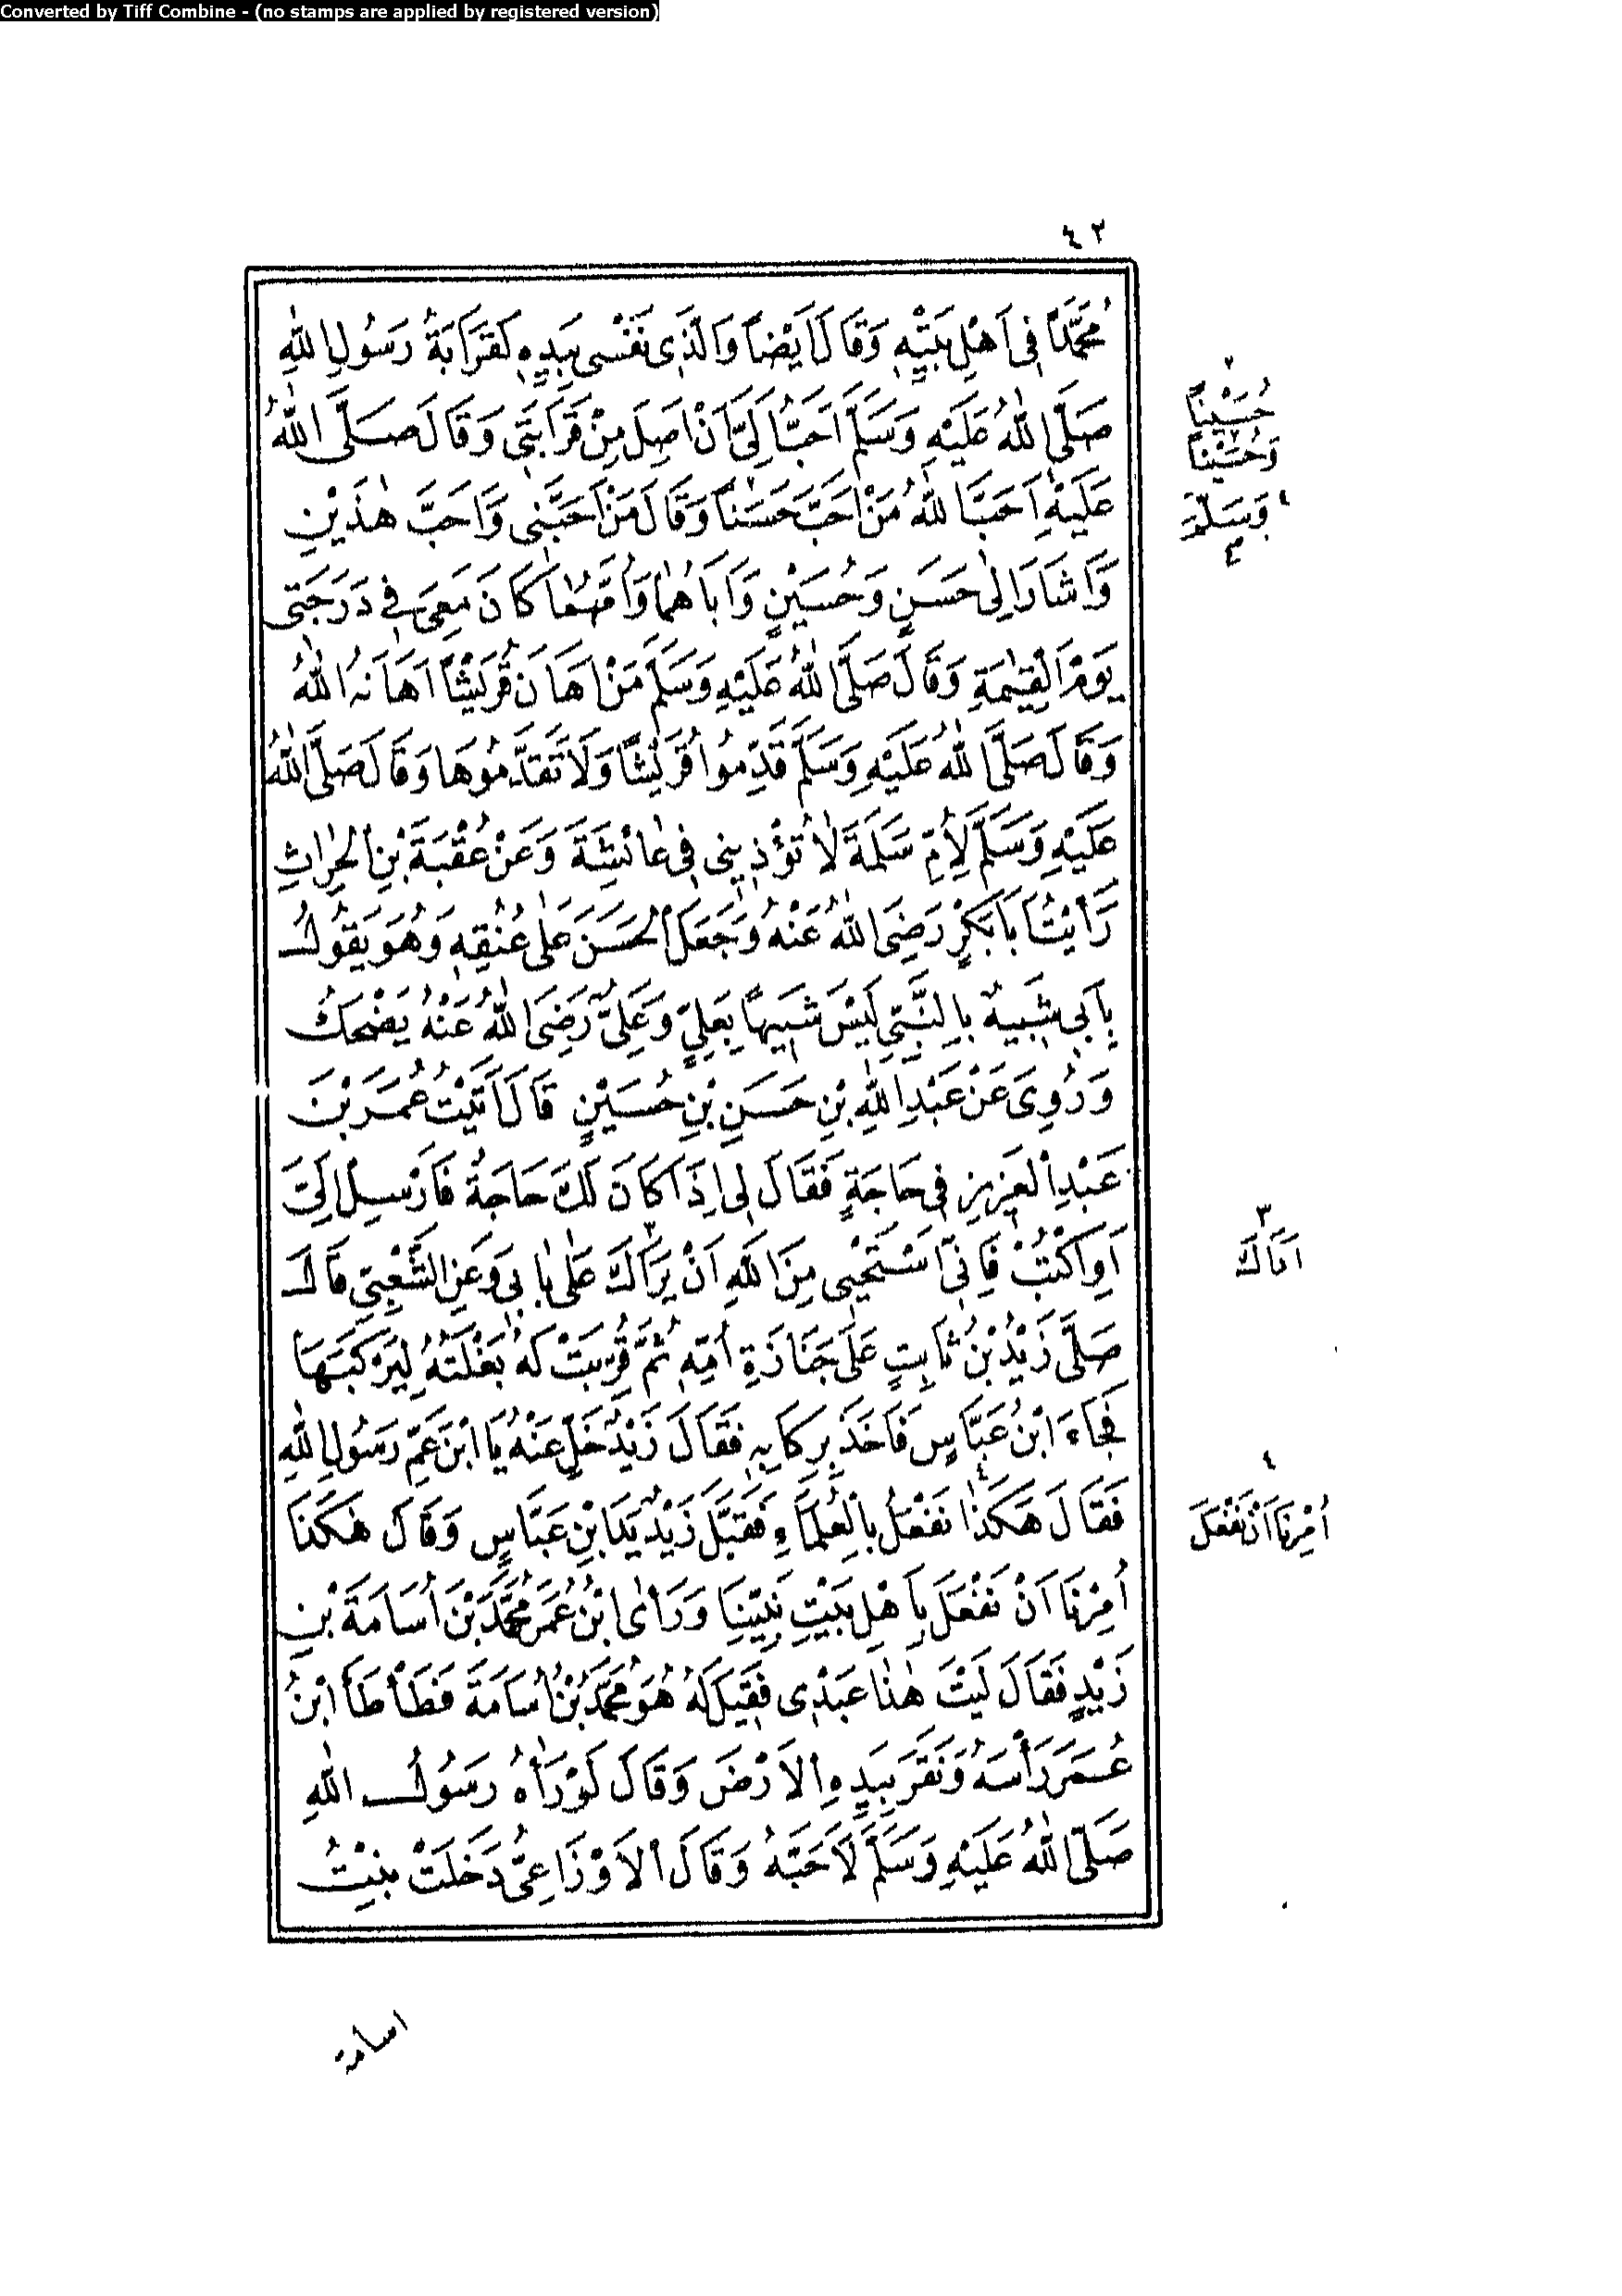 Converted by Tiff Combine - (no stamps are applied by registered version)
٤٣
مُحَمَّدًا فِى اَهْلِ بَيْتِهِ وَقَالَ اَيْضًا وَالَّذِى نَفْسِى بِيَدِهِ لَقَرَابَةُ رَسُولِ اللّٰهِ
صَلَّى اللّٰهُ عَلَيْهِ وَسَلَّمَ اَحَبُّ اِلَىَّ اَنْ اَصِلَ مِنْ قَرَابَتِى وَقَالَ صَلَّى اللّٰهُ
عَلَيْهِ اَحَبَّ اللّٰهُ مَنْ اَحَبَّ حَسَنًا وَقَالَ مَنْ اَحَبَّنِى وَاَحَبَّ هٰذَيْنِ
وَاَشَارَ اِلٰى حَسَنٍ وَحُسَيْنٍ وَاَبَاهُمَا وَاُمَّهُمَا كَانَ مَعِىَ فِى دَرَجَتِى
يَوْمَ الْقِيٰمَةِ وَقَالَ صَلَّى اللّٰهُ عَلَيْهِ وَسَلَّمَ مَنْ اَهَانَ قُرَيْشًا اَهَانَهُ اللّٰهُ
وَقَالَ صَلَّى اللّٰهُ عَلَيْهِ وَسَلَّمَ قَدِّمُوا قُرَيْشًا وَلَا تَقَدَّمُوهَا وَقَالَ صَلَّى اللّٰهُ
عَلَيْهِ وَسَلَّمَ لِأُمِّ سَلَمَةَ لَا تُؤْذِينِى فِى عَائِشَةَ وَعَنْ عُقْبَةَ بْنِ الْحٰرِثِ
رَاَيْتُ اَبَا بَكْرٍ رَضِىَ اللّٰهُ عَنْهُ وَجَعَلَ الْحَسَنَ عَلٰى عُنُقِهِ وَهُوَ يَقُولُ
بِاَبِى شَبِيهٌ بِالنَّبِىِّ لَيْسَ شَبِيهًا بِعَلِىٍّ وَعَلِىٌّ رَضِىَ اللّٰهُ عَنْهُ يَضْحَكُ
وَرُوِىَ عَنْ عَبْدِ اللّٰهِ بْنِ حَسَنِ بْنِ حُسَيْنٍ قَالَ اَتَيْتُ عُمَرَ بْنَ
عَبْدِ الْعَزِيزِ فِى حَاجَةٍ فَقَالَ لِى اِذَا كَانَ لَكَ حَاجَةٌ فَاَرْسِلْ اِلَىَّ
اَوِ اكْتُبْ فَاِنِّى اَسْتَحْيِى مِنَ اللّٰهِ اَنْ يَرَاكَ عَلٰى بَابِى وَعَنِ الشَّعْبِىِّ قَالَ
صَلَّى زَيْدُ بْنُ ثَابِتٍ عَلٰى جَنَازَةِ اُمِّهِ ثُمَّ قُرِّبَتْ لَهُ بَغْلَتُهُ لِيَرْكَبَهَا
فَجَاءَ ابْنُ عَبَّاسٍ فَاَخَذَ بِرِكَابِهِ فَقَالَ زَيْدٌ خَلِّ عَنْهُ يَا ابْنَ عَمِّ رَسُولِ اللّٰهِ
فَقَالَ هٰكَذَا نَفْعَلُ بِالْعُلَمَاءِ فَقَبَّلَ زَيْدٌ يَدَ ابْنِ عَبَّاسٍ وَقَالَ هٰكَذَا
اُمِرْنَا اَنْ نَفْعَلَ بِاَهْلِ بَيْتِ نَبِيِّنَا وَرَاٰى ابْنُ عُمَرَ مُحَمَّدَ بْنَ اُسَامَةَ بْنِ
زَيْدٍ فَقَالَ لَيْتَ هٰذَا عَبْدِى فَقِيلَ لَهُ هُوَ مُحَمَّدُ بْنُ اُسَامَةَ فَطَأْطَأَ ابْنُ
عُمَرَ رَأْسَهُ وَنَقَرَ بِيَدِهِ الْاَرْضَ وَقَالَ لَوْ رَاٰهُ رَسُولُ اللّٰهِ
صَلَّى اللّٰهُ عَلَيْهِ وَسَلَّمَ لَاَحَبَّهُ وَقَالَ الْاَوْزَاعِىُّ دَخَلَتْ بِنْتُ
اسامة
٢
حُسَيْنًا
وَحُسَيْنًا
وَسَلَّمَ
٣
اَتَاكَ
٤
اُمِرْنَا اَنْ نَفْعَلَ